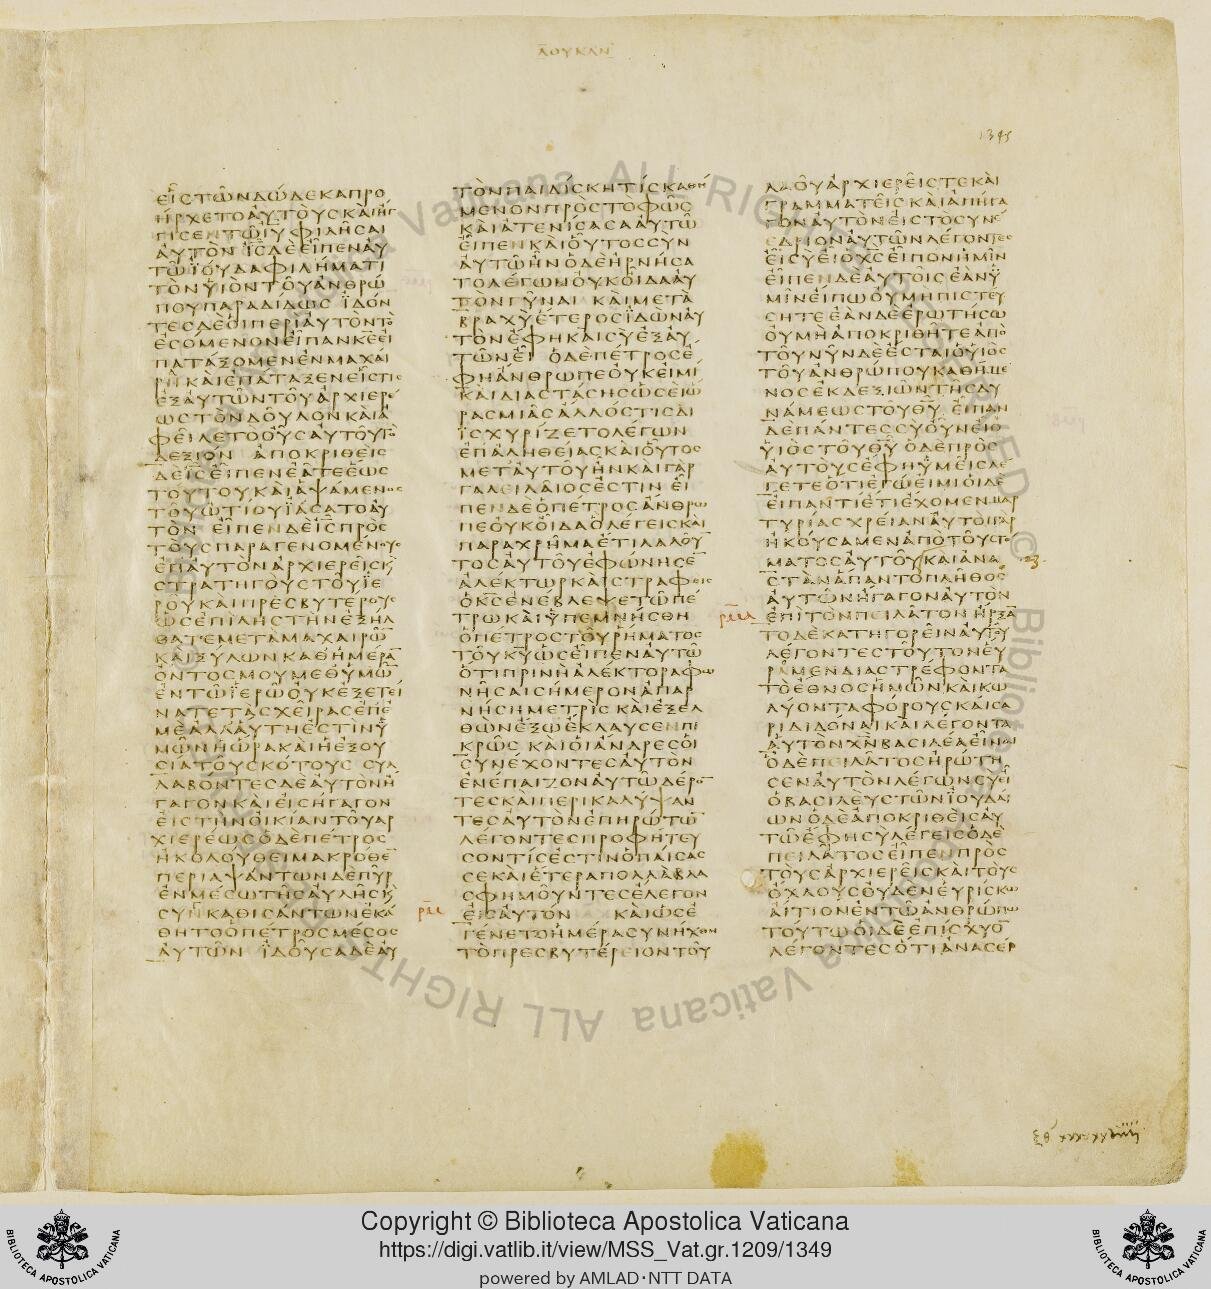 ΛΟΥΚΑΝ
1345
ΕΙΣΤΩΝΔΩΔΕΚΑΠΡΟ
ΗΡΧΕΤΟΑΥΤΟΥΣΚΑΙΗΓ
ΓΙΣΕΝΤΩΙΥΦΙΛΗΣΑΙ
ΑΥΤΟΝ ΙΣΔΕΕΙΠΕΝΑΥ
ΤΩΪΟΥΔΑΦΙΛΗΜΑΤΙ
ΤΟΝΥΙΟΝΤΟΥΑΝΘΡΩ
ΠΟΥΠΑΡΑΔΙΔΩΣ ΪΔΟΝ
ΤΕΣΔΕΟΙΠΕΡΙΑΥΤΟΝΤΟ
ΕΣΟΜΕΝΟΝΕΙΠΑΝΚΕΕΙ
ΠΑΤΑΞΟΜΕΝΕΝΜΑΧΑΙ
ΡΗΚΑΙΕΠΑΤΑΞΕΝΕΙΣΤΙΣ
ΕΞΑΥΤΩΝΤΟΥΑΡΧΙΕΡΕ
ΩΣΤΟΝΔΟΥΛΟΝΚΑΙΑ
ΦΕΙΛΕΤΟΟΥΣΑΥΤΟΥΤΟ
ΔΕΞΙΟΝ ΑΠΟΚΡΙΘΕΙΣ
ΔΕΙΣΕΙΠΕΝΕΑΤΕΕΩΣ
ΤΟΥΤΟΥΚΑΙΑΨΑΜΕΝΟΣ
ΤΟΥΩΤΙΟΥΪΑΣΑΤΟΑΥ
ΤΟΝ ΕΙΠΕΝΔΕΙΣΠΡΟΣ
ΤΟΥΣΠΑΡΑΓΕΝΟΜΕΝΟΥΣ
ΕΠΑΥΤΟΝΑΡΧΙΕΡΕΙΣΚ
ΣΤΡΑΤΗΓΟΥΣΤΟΥΪΕ
ΡΟΥΚΑΙΠΡΕΣΒΥΤΕΡΟΥΣ
ΩΣΕΠΙΛΗΣΤΗΝΕΞΗΛ
ΘΑΤΕΜΕΤΑΜΑΧΑΙΡΩ
ΚΑΙΞΥΛΩΝΚΑΘΗΜΕΡΑ
ΟΝΤΟΣΜΟΥΜΕΘΥΜΩ
ΕΝΤΩΪΕΡΩΟΥΚΕΞΕΤΕΙ
ΝΑΤΕΤΑΣΧΕΙΡΑΣΕΠΕ
ΜΕΑΛΛΑΥΤΗΕΣΤΙΝΥ
ΜΩΝΗΩΡΑΚΑΙΗΕΞΟΥ
ΣΙΑΤΟΥΣΚΟΤΟΥΣ ΣΥΛ
ΛΑΒΟΝΤΕΣΔΕΑΥΤΟΝΗ
ΓΑΓΟΝΚΑΙΕΙΣΗΓΑΓΟΝ
ΕΙΣΤΗΝΟΙΚΙΑΝΤΟΥΑΡ
ΧΙΕΡΕΩΣΟΔΕΠΕΤΡΟΣ
ΗΚΟΛΟΥΘΕΙΜΑΚΡΟΘΕ
ΠΕΡΙΑΨΑΝΤΩΝΔΕΠΥΡ
ΕΝΜΕΣΩΤΗΣΑΥΛΗΣΚ
ΣΥΝΚΑΘΙΣΑΝΤΩΝΕΚΑ
ΘΗΤΟΟΠΕΤΡΟΣΜΕΣΟΣ
ΑΥΤΩΝ ΪΔΟΥΣΑΔΕΑΥ
ΤΟΝΠΑΙΔΙΣΚΗΤΙΣΚΑΘΗ
ΜΕΝΟΝΠΡΟΣΤΟΦΩΣ
ΚΑΙΑΤΕΝΙΣΑΣΑΑΥΤΩ
ΕΙΠΕΝΚΑΙΟΥΤΟΣΣΥΝ
ΑΥΤΩΗΝΟΔΕΗΡΝΗΣΑ
ΤΟΛΕΓΩΝΟΥΚΟΙΔΑΑΥ
ΤΟΝΓΥΝΑΙ ΚΑΙΜΕΤΑ
ΒΡΑΧΥΕΤΕΡΟΣΪΔΩΝΑΥ
ΤΟΝΕΦΗΚΑΙΣΥΕΞΑΥ
ΤΩΝΕΙ ΟΔΕΠΕΤΡΟΣΕ
ΦΗΑΝΘΡΩΠΕΟΥΚΕΙΜΙ
ΚΑΙΔΙΑΣΤΑΣΗΣΩΣΕΙΩ
ΡΑΣΜΙΑΣΑΛΛΟΣΤΙΣΔΙ
ΪΣΧΥΡΙΖΕΤΟΛΕΓΩΝ
ΕΠΑΛΗΘΕΙΑΣΚΑΙΟΥΤΟΣ
ΜΕΤΑΥΤΟΥΗΝΚΑΙΓΑΡ
ΓΑΛΕΙΛΑΙΟΣΕΣΤΙΝ ΕΙ
ΠΕΝΔΕΟΠΕΤΡΟΣΑΝΘΡΩ
ΠΕΟΥΚΟΙΔΑΟΛΕΓΕΙΣΚΑΙ
ΠΑΡΑΧΡΗΜΑΕΤΙΛΑΛΟΥ
ΤΟΣΑΥΤΟΥΕΦΩΝΗΣΕ
ΑΛΕΚΤΩΡΚΑΙΣΤΡΑΦΕΙΣ
ΟΚΣΕΝΕΒΛΕΨΕΤΩΠΕ
ΤΡΩΚΑΙΥΠΕΜΝΗΣΘΗ
ΟΠΕΤΡΟΣΤΟΥΡΗΜΑΤΟΣ
ΤΟΥΚΥΩΣΕΙΠΕΝΑΥΤΩ
ΟΤΙΠΡΙΝΗΑΛΕΚΤΟΡΑΦΩ
ΝΗΣΑΙΣΗΜΕΡΟΝΑΠΑΡ
ΝΗΣΗΜΕΤΡΙΣΚΑΙΕΞΕΛ
ΘΩΝΕΞΩΕΚΛΑΥΣΕΝΠΙ
ΚΡΩΣ ΚΑΙΟΙΑΝΔΡΕΣΟΙ
ΣΥΝΕΧΟΝΤΕΣΑΥΤΟΝ
ΕΝΕΠΑΙΖΟΝΑΥΤΩΔΕΡΟ
ΤΕΣΚΑΙΠΕΡΙΚΑΛΥΨΑΝ
ΤΕΣΑΥΤΟΝΕΠΗΡΩΤΩ
ΛΕΓΟΝΤΕΣΠΡΟΦΗΤΕΥ
ΣΟΝΤΙΣΕΣΤΙΝΟΠΑΙΣΑΣ
ΣΕΚΑΙΕΤΕΡΑΠΟΛΛΑΒΛΑ
ΣΦΗΜΟΥΝΤΕΣΕΛΕΓΟΝ
ΕΙΣΑΥΤΟΝ ΚΑΙΩΣΕ
ΓΕΝΕΤΟΗΜΕΡΑΣΥΝΗΧΘΗ
ΤΟΠΡΕΣΒΥΤΕΡΕΙΟΝΤΟΥ
ΛΑΟΥΑΡΧΙΕΡΕΙΣΤΕΚΑΙ
ΓΡΑΜΜΑΤΕΙΣΚΑΙΑΠΗΓΑ
ΓΟΝΑΥΤΟΝΕΙΣΤΟΣΥΝΕ
ΔΡΙΟΝΑΥΤΩΝΛΕΓΟΝΤΕΣ
ΕΙΣΥΕΙΟΧΣΕΙΠΟΝΗΜΙΝ
ΕΙΠΕΝΔΕΑΥΤΟΙΣΕΑΝΥ
ΜΙΝΕΙΠΩΟΥΜΗΠΙΣΤΕΥ
ΣΗΤΕΕΑΝΔΕΕΡΩΤΗΣΩ
ΟΥΜΗΑΠΟΚΡΙΘΗΤΕΑΠΟ
ΤΟΥΝΥΝΔΕΕΣΤΑΙΟΥΙΟΣ
ΤΟΥΑΝΘΡΩΠΟΥΚΑΘΗΜΕ
ΝΟΣΕΚΔΕΞΙΩΝΤΗΣΔΥ
ΝΑΜΕΩΣΤΟΥΘΥ ΕΙΠΑΝ
ΔΕΠΑΝΤΕΣΣΥΟΥΝΕΙΟ
ΥΙΟΣΤΟΥΘΥ ΟΔΕΠΡΟΣ
ΑΥΤΟΥΣΕΦΗΥΜΕΙΣΛΕ
ΓΕΤΕΟΤΙΕΓΩΕΙΜΙΟΙΔΕ
ΕΙΠΑΝΤΙΕΤΙΕΧΟΜΕΝΜΑΡ
ΤΥΡΙΑΣΧΡΕΙΑΝΑΥΤΟΙΓΑΡ
ΗΚΟΥΣΑΜΕΝΑΠΟΤΟΥΣΤΟ
ΜΑΤΟΣΑΥΤΟΥΚΑΙΑΝΑ
ΣΤΑΝΑΠΑΝΤΟΠΛΗΘΟΣ
ΑΥΤΩΝΗΓΑΓΟΝΑΥΤΟΝ
ΕΠΙΤΟΝΠΕΙΛΑΤΟΝ ΗΡΞΑ
ΤΟΔΕΚΑΤΗΓΟΡΕΙΝΑΥΤΟΥ
ΛΕΓΟΝΤΕΣΤΟΥΤΟΝΕΥ
ΡΑΜΕΝΔΙΑΣΤΡΕΦΟΝΤΑ
ΤΟΕΘΝΟΣΗΜΩΝΚΑΙΚΩ
ΛΥΟΝΤΑΦΟΡΟΥΣΚΑΙΣΑ
ΡΙΔΙΔΟΝΑΙΚΑΙΛΕΓΟΝΤΑ
ΑΥΤΟΝΧΝΒΑΣΙΛΕΑΕΙΝΑΙ
ΟΔΕΠΕΙΛΑΤΟΣΗΡΩΤΗ
ΣΕΝΑΥΤΟΝΛΕΓΩΝΣΥΕΙ
ΟΒΑΣΙΛΕΥΣΤΩΝΪΟΥΔΑΙ
ΩΝΟΔΕΑΠΟΚΡΙΘΕΙΣΑΥ
ΤΩΕΦΗΣΥΛΕΓΕΙΣΟΔΕ
ΠΕΙΛΑΤΟΣΕΙΠΕΝΠΡΟΣ
ΤΟΥΣΑΡΧΙΕΡΕΙΣΚΑΙΤΟΥΣ
ΟΧΛΟΥΣΟΥΔΕΝΕΥΡΙΣΚΩ
ΑΙΤΙΟΝΕΝΤΩΑΝΘΡΩΠΩ
ΤΟΥΤΩΟΙΔΕΕΠΙΣΧΥΟ
ΛΕΓΟΝΤΕΣΟΤΙΑΝΑΣΕΙ
Copyright © Biblioteca Apostolica Vaticana
https://digi.vatlib.it/view/MSS_Vat.gr.1209/1349
powered by AMLAD·NTT DATA
BIBLIOTECA APOSTOLICA VATICANA
BIBLIOTECA APOSTOLICA VATICANA